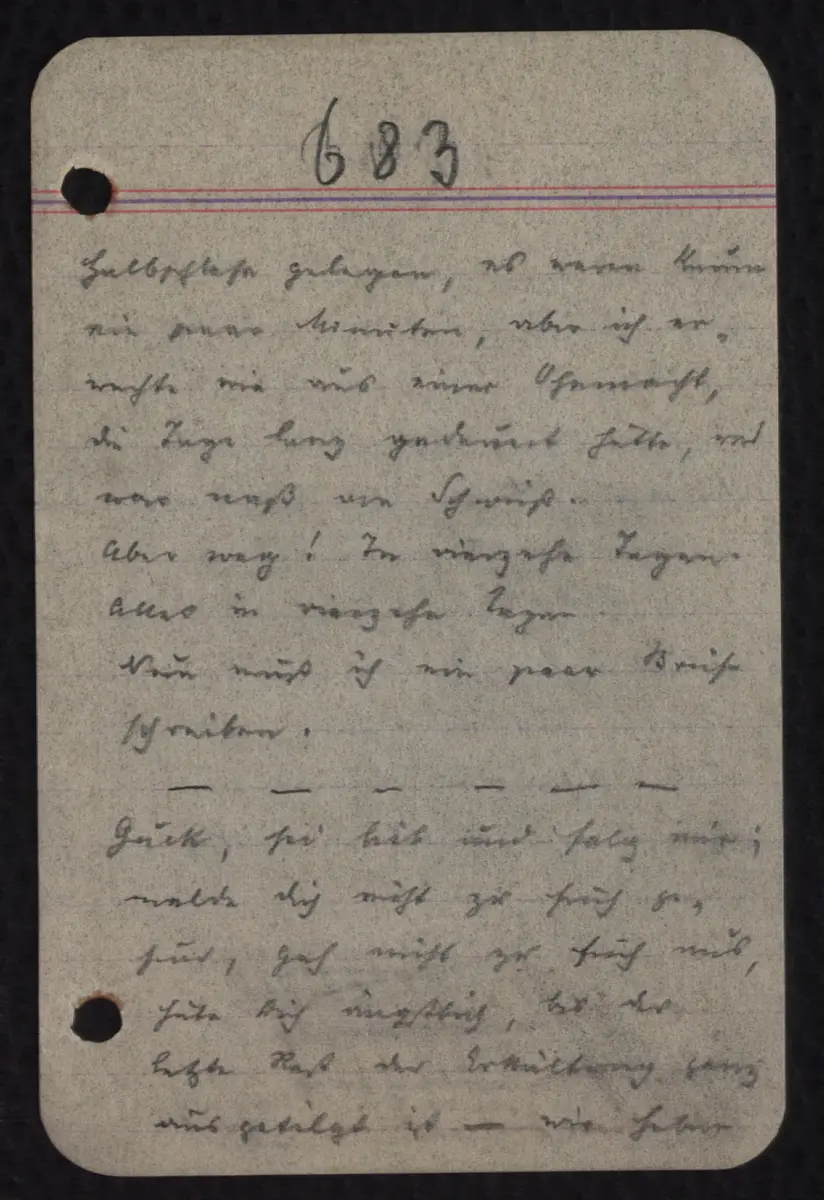 683
Halbschlafe gelegen, es waren kaum
ein paar Minuten, aber ich er-
wachte wie aus einer Ohnmacht,
die Tage lang gedauert hätte, und
war naß von Schweiß.
Aber weg! In vierzehn Tagen.
Alles in vierzehn Tagen
Nun muß ich ein paar Briefe
schreiben.
— — — — — —
Guck, sei lieb und folg mir;
melde dich nicht zu früh ge-
sund, geh nicht zu früh aus,
hüte dich ängstlich, bis der
letzte Rest der Erkältung ganz
ausgetilgt ist — wir haben